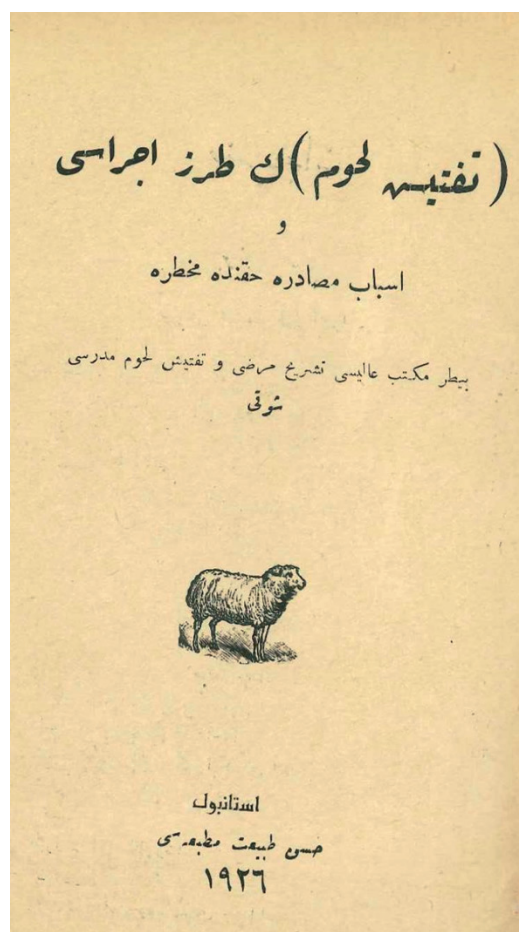 (تفتيش لحوم) ك طرز اجراسى
و
اسباب مصادره حقنده مخطره
بيطر مكتب عاليسى تشريح مرضى و تفتيش لحوم مدرسى
شوقى
استانبول
حسن طبيعت مطبعه سى
١٩٢٦